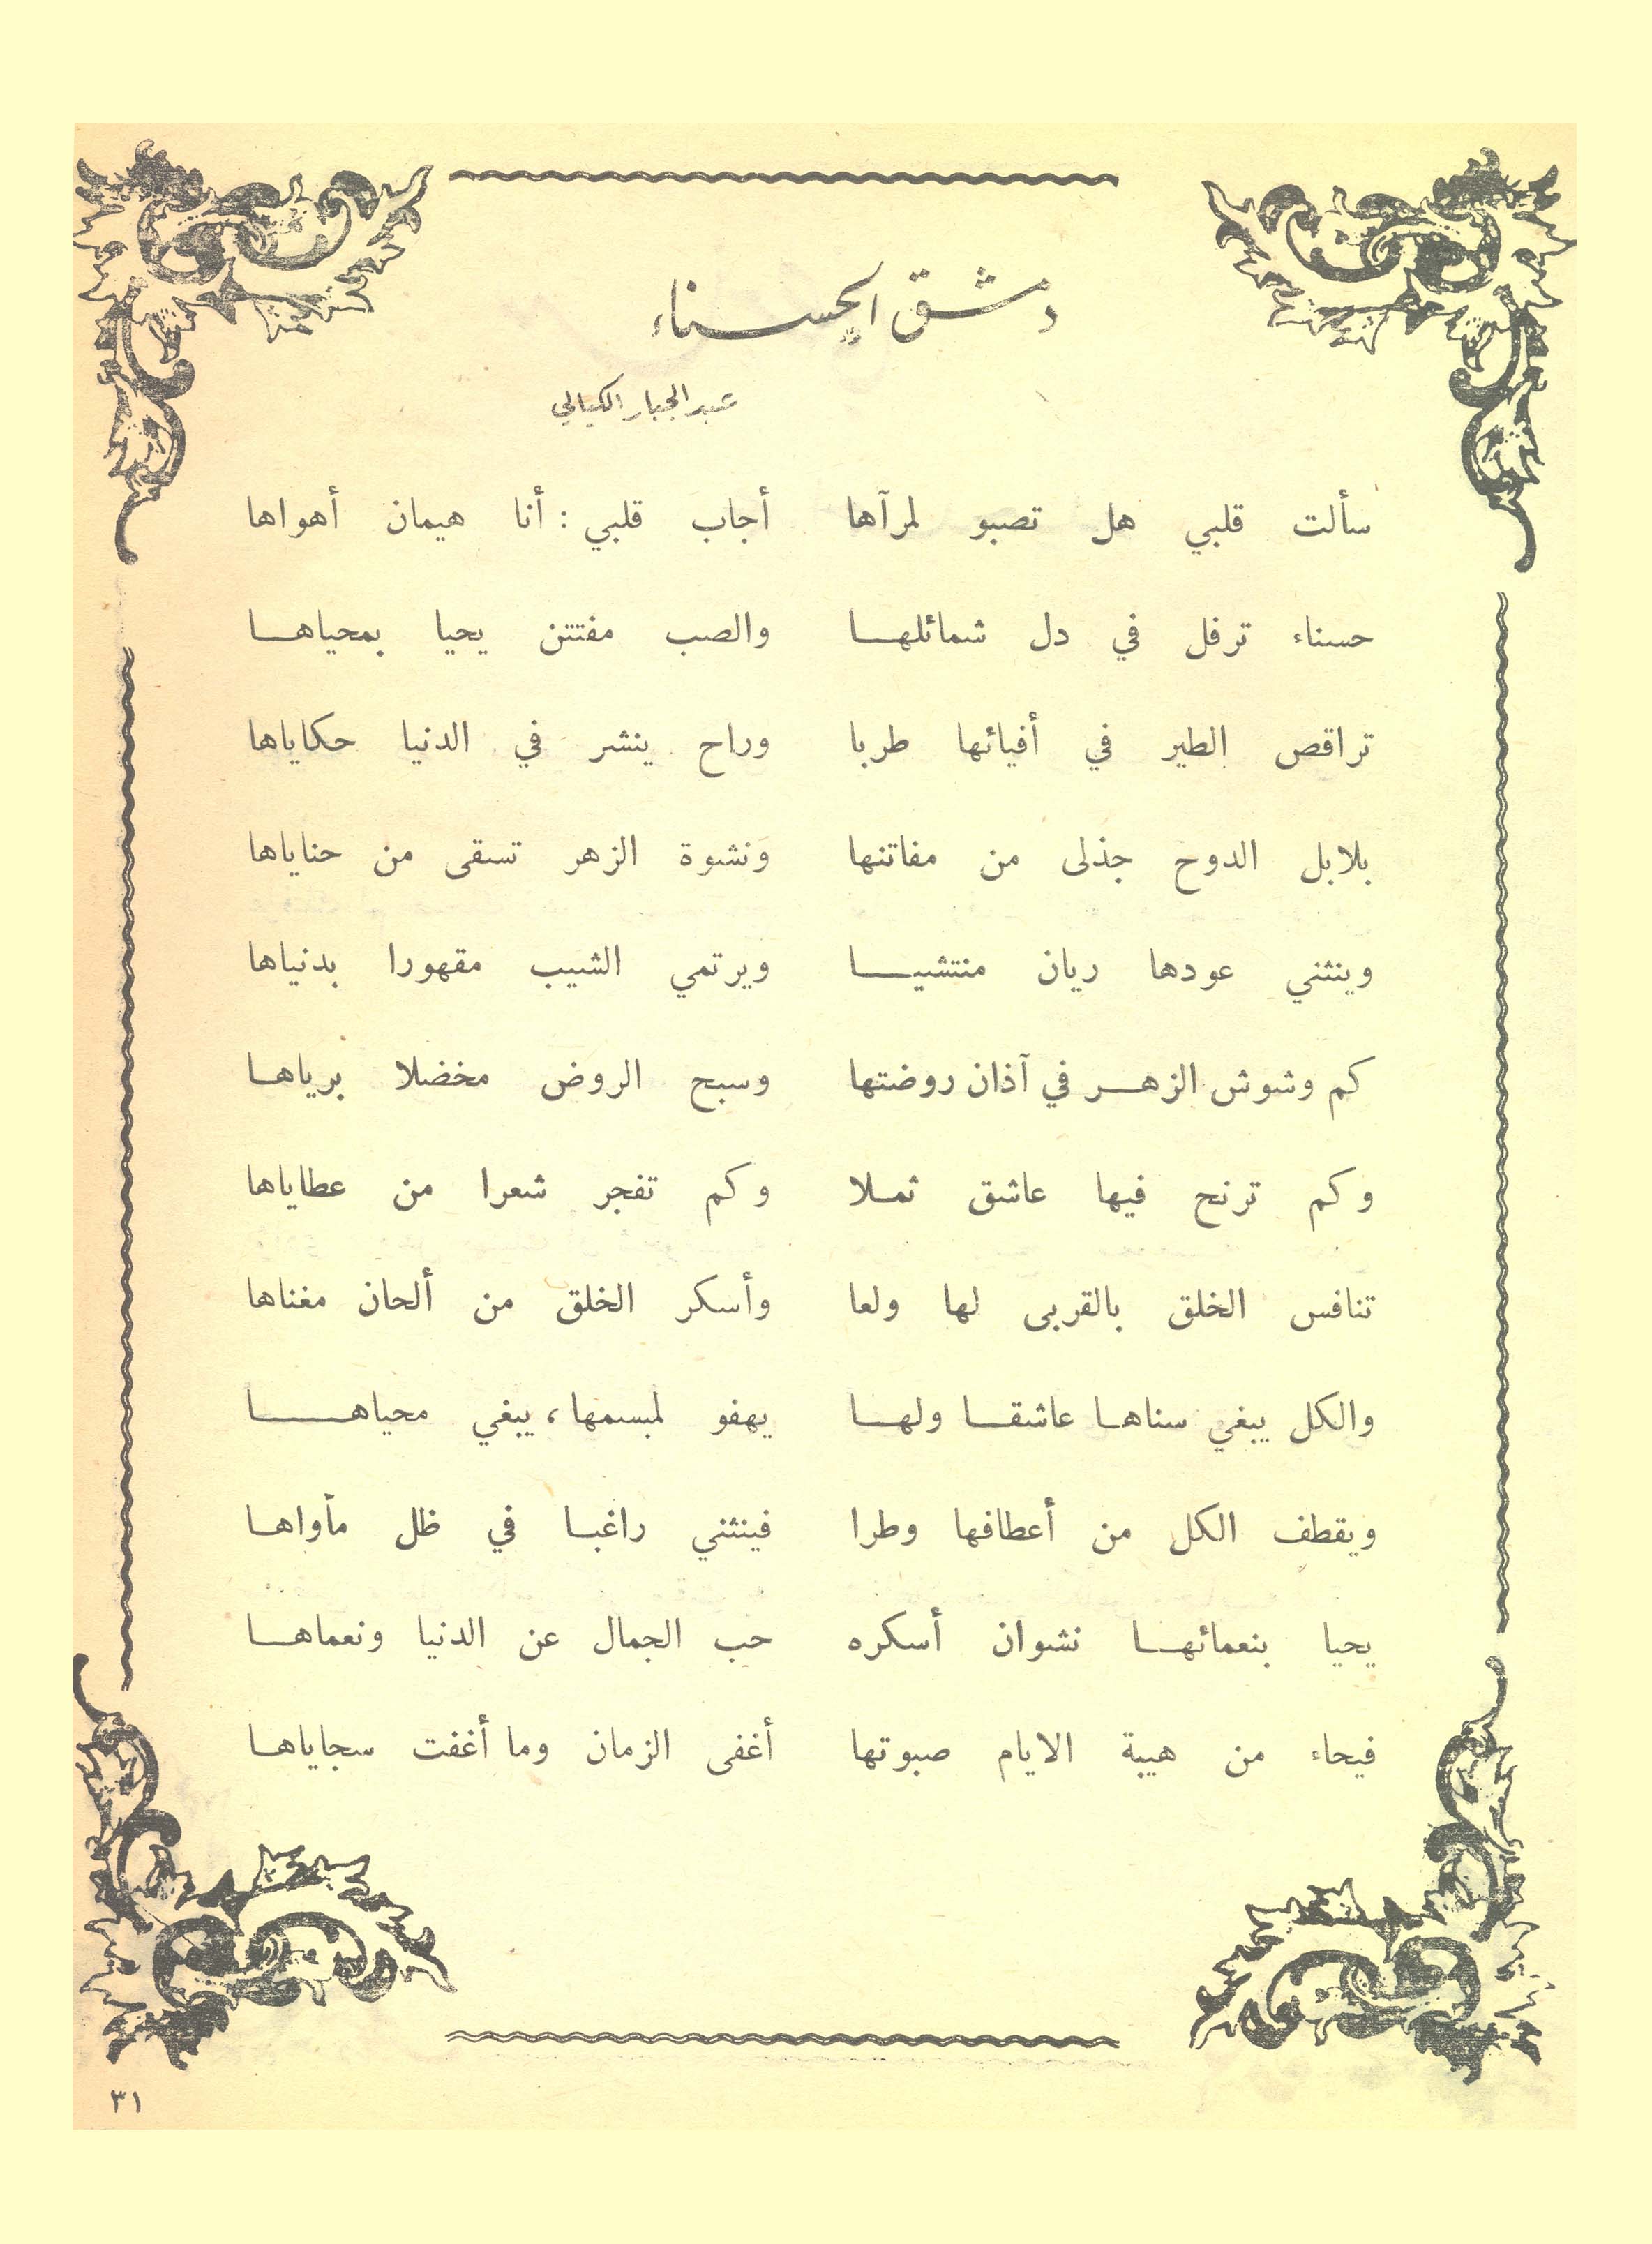 دمشق الحسناء
عبد الجبار الكيالي
سألت قلبي هل تصبو لمرآها أجاب قلبي : أنا هيمان أهواها
حسناء ترفل في دل شمائلهـا والصب مفتتن يحيا بمحياهـا
تراقص الطير في أفيائها طربا وراح ينشر في الدنيا حكاياها
بلابل الدوح جذلى من مفاتنها ونشوة الزهر تسقى من حناياها
وينثني عودها ريان منتشيـا ويرتمي الشيب مقهورا بدنياها
كم وشوش الزهـر في آذان روضتها وسبح الروض مخضلا برياهـا
وكم ترنح فيها عاشق ثمـلا وكم تفجر شعرا من عطاياها
تنافس الخلق بالقربى لها ولعا وأسكر الخلق من ألحان مغناها
والكل يبغي سناهـا عاشقـا ولهـا يهفو لمبسمها ، يبغي محياهـا
ويقطف الكل من أعطافها وطرا فينثني راغبـا في ظل مأواهـا
يحيا بنعمائهـا نشوان أسكره حب الجمال عن الدنيا ونعماهـا
فيحاء من هيبة الايام صبوتها أغفى الزمان وما أغفت سجاياهـا
٣١